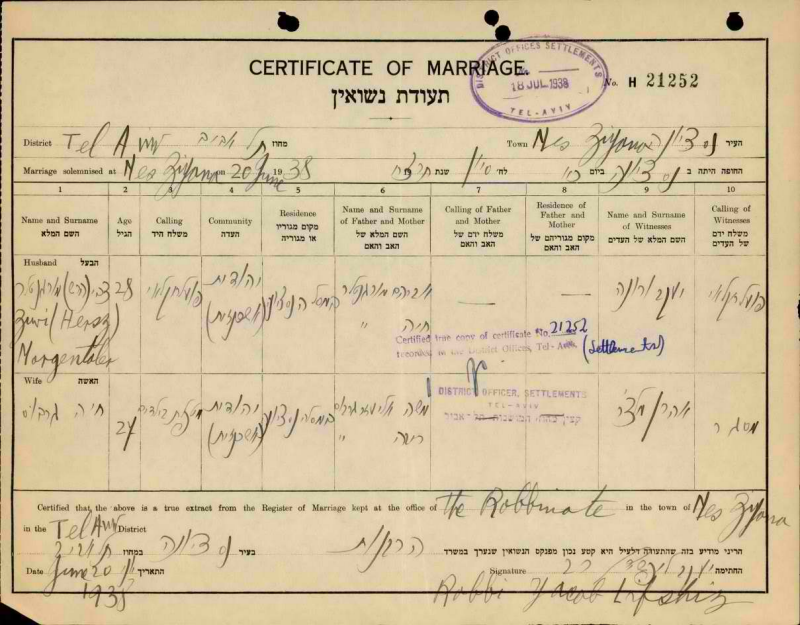 CERTIFICATE OF MARRIAGE
תעודת נשואין
DISTRICT OFFICES SETTLEMENTS
18 JUL 1938
TEL-AVIV
No. H 21252
District Tel Aviv תל אביב מחוז
Town Nes Ziyona נס ציונה העיר
Marriage solemnised at Nes Ziyona on 20 June 1938
החופה היתה ב נס ציונה ביום לח' סיון שנת תרצ"ח
1 2 3 4 5 6 7 8 9 10
Name and Surname
השם המלא
Age
הגיל
Calling
משלח היד
Community
העדה
Residence
מקום מגוריו
או מגוריה
Name and Surname of Father and Mother
השם המלא של
האב והאם
Calling of Father and Mother
משלח ידם של
האב והאם
Residence of Father and Mother
מקום מגוריהם של
האב והאם
Name and Surname of Witnesses
השם המלא של העדים
Calling of Witnesses
משלח ידם
של העדים
Husband הבעל
צבי (הרש) מורגנטלר
Zwi (Hersz)
Morgentaler
28
פועל חקלאי
יהודית
(אשכנזית)
אברהם מורגנטלר
חיה "
— —
פועל חקלאי
Certified true copy of certificate No. 21252
recorded in the District Offices, Tel-Aviv.
(Settlements)
DISTRICT OFFICER, SETTLEMENTS
TEL-AVIV
Wife האשה
חיה
27
יהודית
(אשכנזית)
משה
"
אהרן
מסגר
Certified that the above is a true extract from the Register of Marriage kept at the office of The Rabbinate in the town of Nes Ziyona
in the Tel Aviv District
הריני מודיע בזה שהתעודה דלעיל היא קטע נכון מפנקס הנשואין שנערך במשרד הרבנות בעיר נס ציונה במחוז תל אביב
Date June 20 התאריך
1938
Signature החתימה
Rabbi Jacob Lifshiz